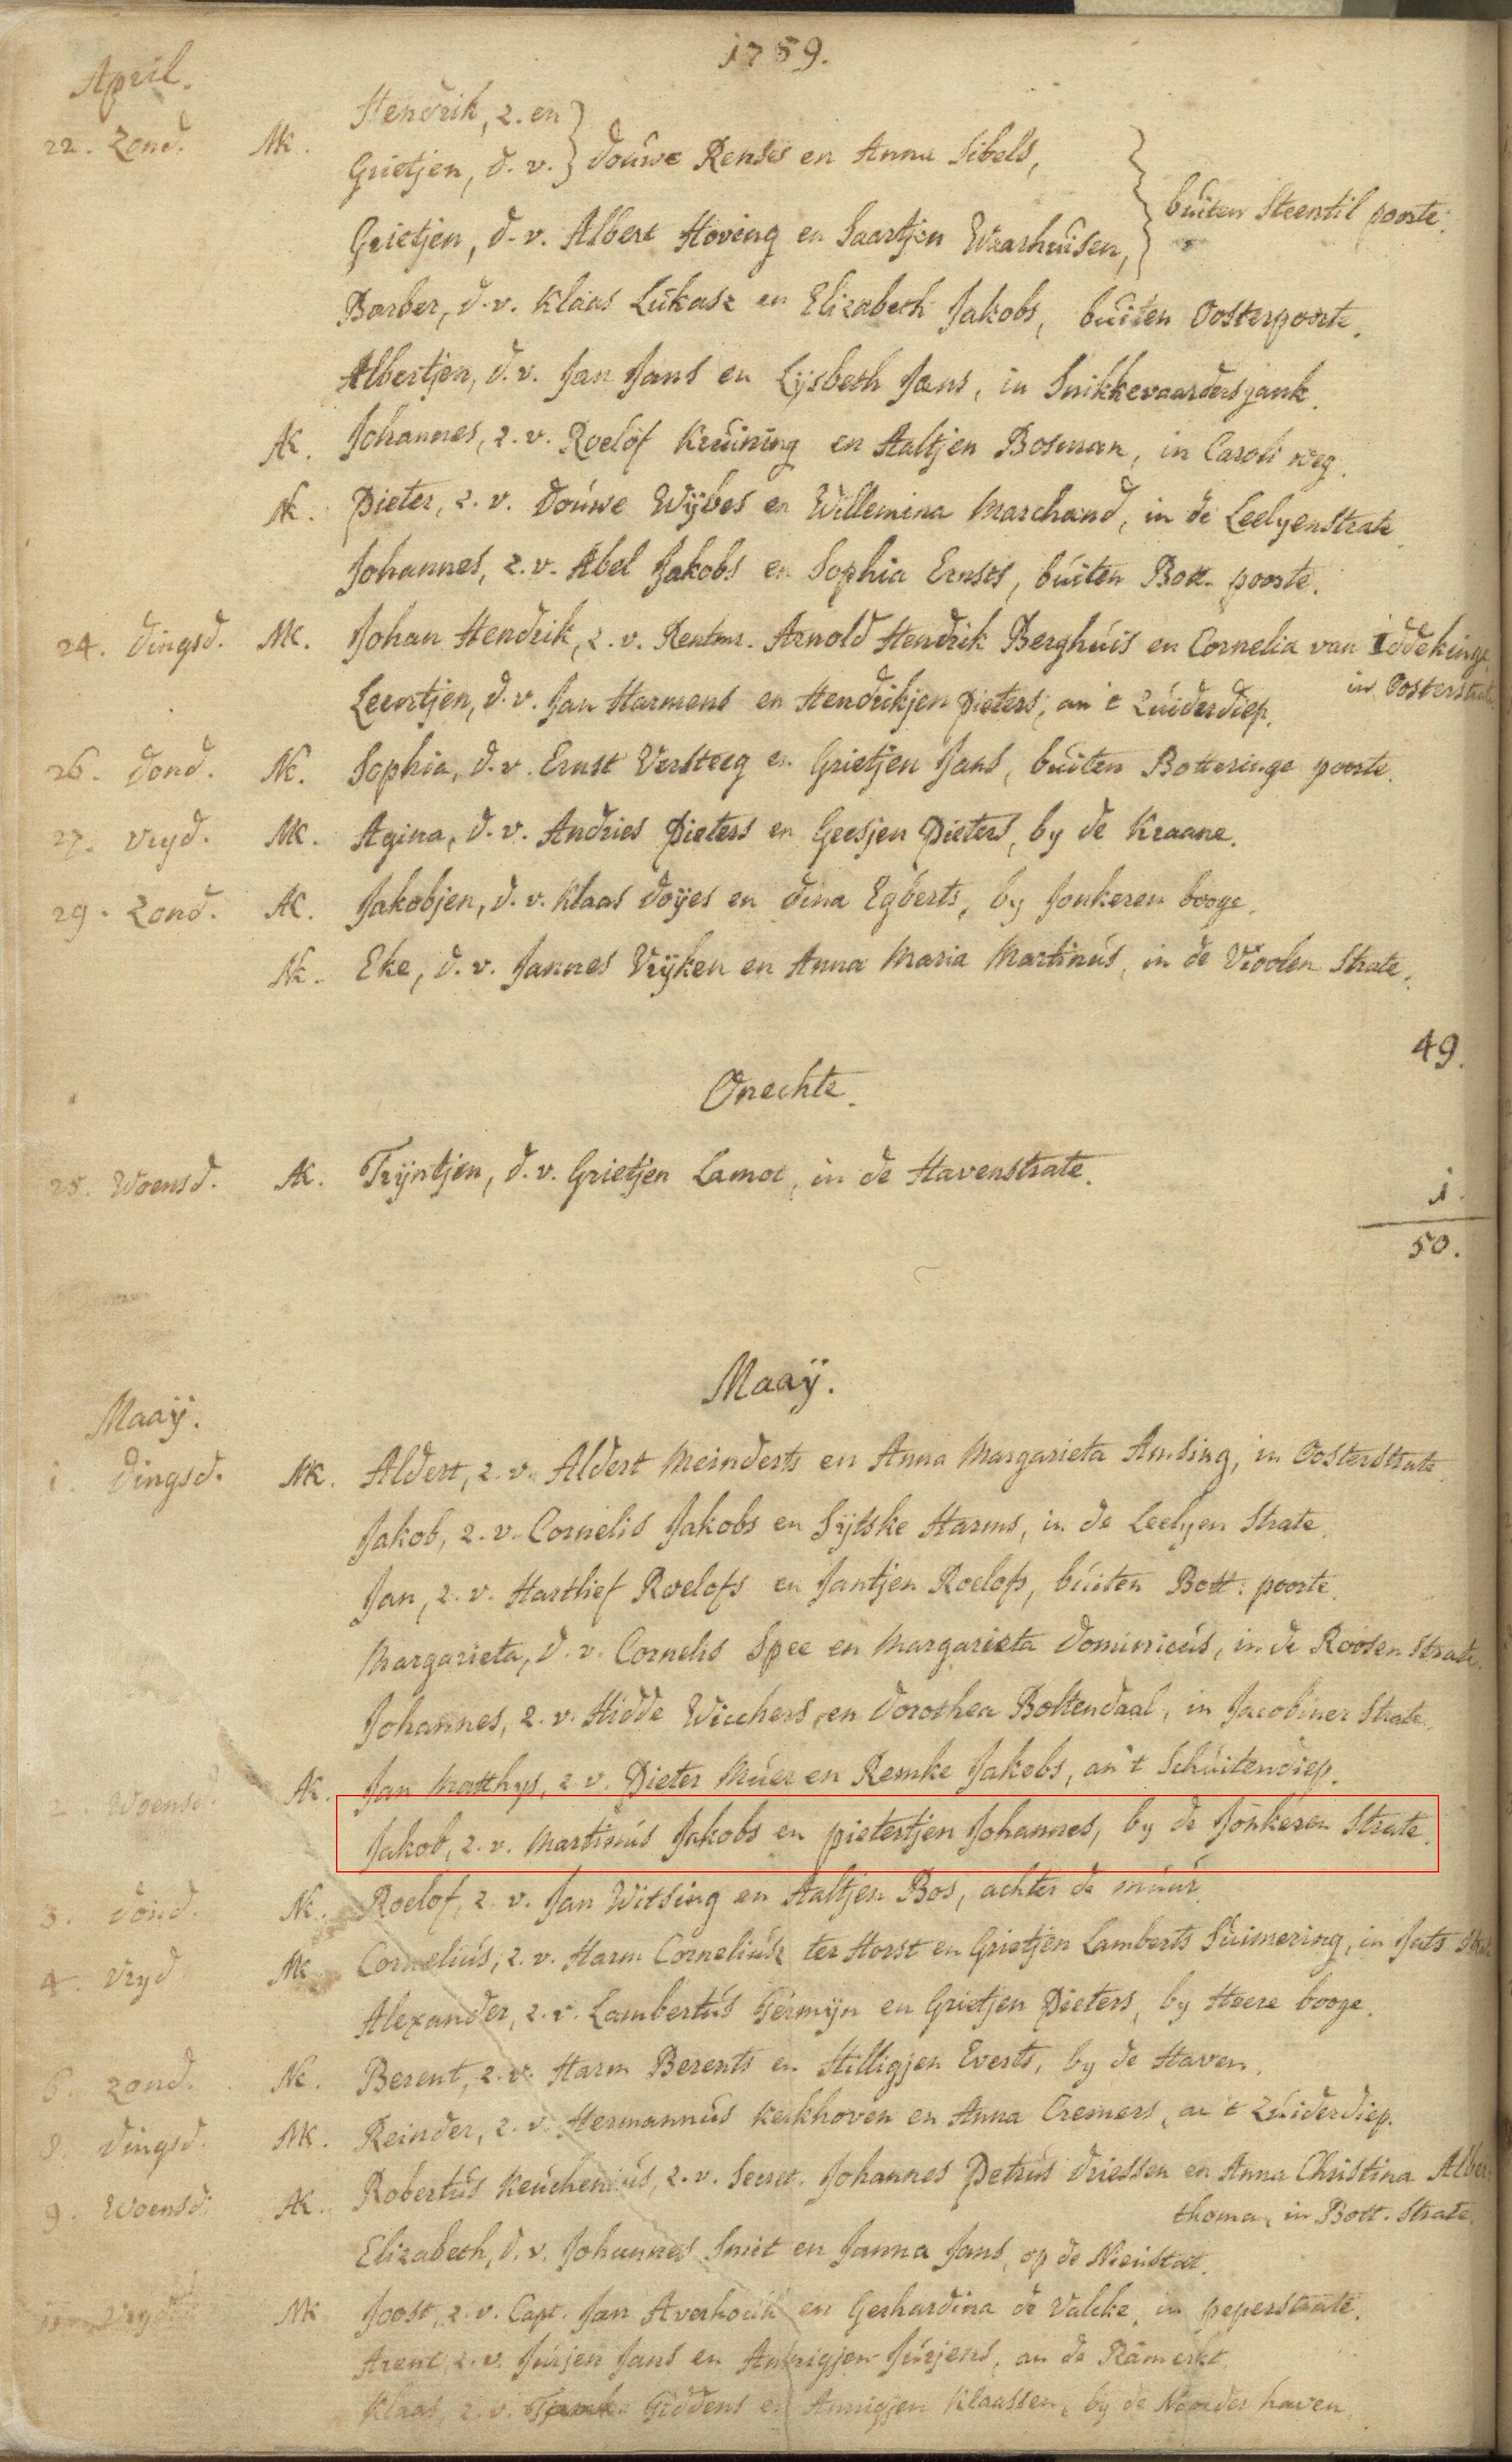 1759.
April.
Hendrik, z. en
22. Zond. MK. Grietjen, d. v. } Douwe Renses en Anna Sibels,
buiten Steentil poorte.
Grietjen, d. v. Albert Hoving en Saartjen Waarhuisen,
Barber, d. v. Klaas Lukasz en Elizabeth Jakobs, buiten Oosterpoorte.
Albertjen, d. v. Jan Jans en Lysbeth Jans, in Snikkevaardersgank.
AK. Johannes, z. v. Roelof Kruining en Aaltjen Bosman, in Caroli weg.
NK. Pieter, z. v. Douwe Wÿbes en Willemina Marchand, in de Leelyenstrate
Johannes, z. v. Abel Jakobs en Sophia Ernsts, buiten Bott. poorte.
24. Dingsd. MK. Johan Hendrik, z. v. Rentmr. Arnold Hendrik Berghuis en Cornelia van Iddekinge,
in Oosterstrate.
Leentjen, d. v. Jan Harmens en Hendrikjen Pieters, an 't Zuiderdiep.
26. Dond. NK. Sophia, d. v. Ernst Versteeg en Grietjen Jans, buiten Botteringe poorte.
27. Vryd. MK. Agina, d. v. Andries Pieters en Geesjen Pieters, by de Kraane.
29. Zond. AK. Jakobjen, d. v. Klaas Doÿes en Dina Egberts, by Jonkeren booge.
NK. Eke, d. v. Jannes Vrÿken en Anna Maria Martinus, in de Violen Strate.
49.
Onechte.
25. Woensd. AK. Trÿntjen, d. v. Grietjen Lamot, in de Havenstrate.
1.
50.
Maaÿ.
Maaÿ.
1. Dingsd. MK. Aldert, z. v. Aldert Meinderts en Anna Margarieta Amsing, in Oosterstrate.
Jakob, z. v. Cornelis Jakobs en Sÿtske Harms, in de Leelyen Strate.
Jan, z. v. Hartlief Roelofs en Jantjen Roelofs, buiten Bott. poorte.
Margarieta, d. v. Cornelis Spee en Margarieta Dominicus, in de Roosen Strate.
Johannes, z. v. Hidde Wicchers en Dorothea Boltendaal, in Jacobiner Strate.
2. Woensd. AK. Jan Matthys, z. v. Pieter Muer en Remke Jakobs, an 't Schuitendiep.
Jakob, z. v. Martinus Jakobs en pietertjen Johannes, by de Jonkeren Strate.
3. Dond. NK. Roelof, z. v. Jan Witsing en Aaltjen Bos, achter de muur.
4. Vryd. MK. Cornelius, z. v. Harm Corneliusz ter Horst en Grietjen Lamberts Suimering, in Jats Strate
Alexander, z. v. Lambertus Termÿn en Grietjen Pieters, by Heere booge.
6. Zond. NK. Berent, z. v. Harm Berents en Hilligjen Everts, by de Haven.
8. Dingsd. MK. Reinder, z. v. Hermannus Kerkhoven en Anna Cremers, an 't Zuiderdiep.
9. Woensd. AK. Robertus Keuchenius, z. v. Secret. Johannes Petrus Driessen en Anna Christina Alber-
thoma, in Bott. Strate.
Elizabeth, d. v. Johannes Smit en Janna Jans, op de Nieustat.
11. Vryd. MK Joost, z. v. Capt. Jan Averhoult en Gerhardina de Valcke, in peperstrate.
Arent, z. v. Jurjen Jans en Annigjen Jurjens, an de Rämerkt.
Klaas, z. v. Giddens en Annigjen Klaassen, by de Noorder haven